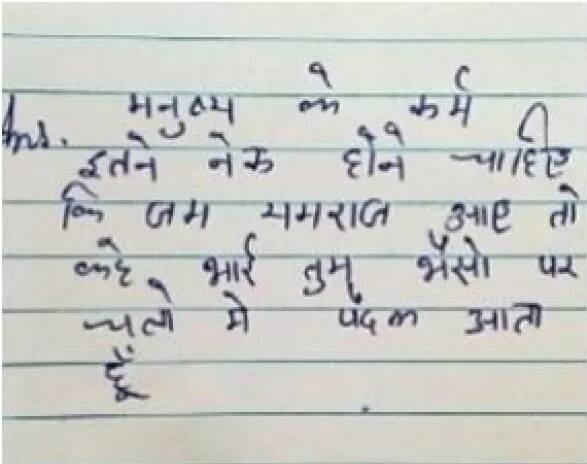 मनुष्य के कर्म
Ans. इतने नेक होने चाहिए
कि जब यमराज आए तो
कहे भाई तुम भैसो पर
चलो मे पैदल आता
हूँ